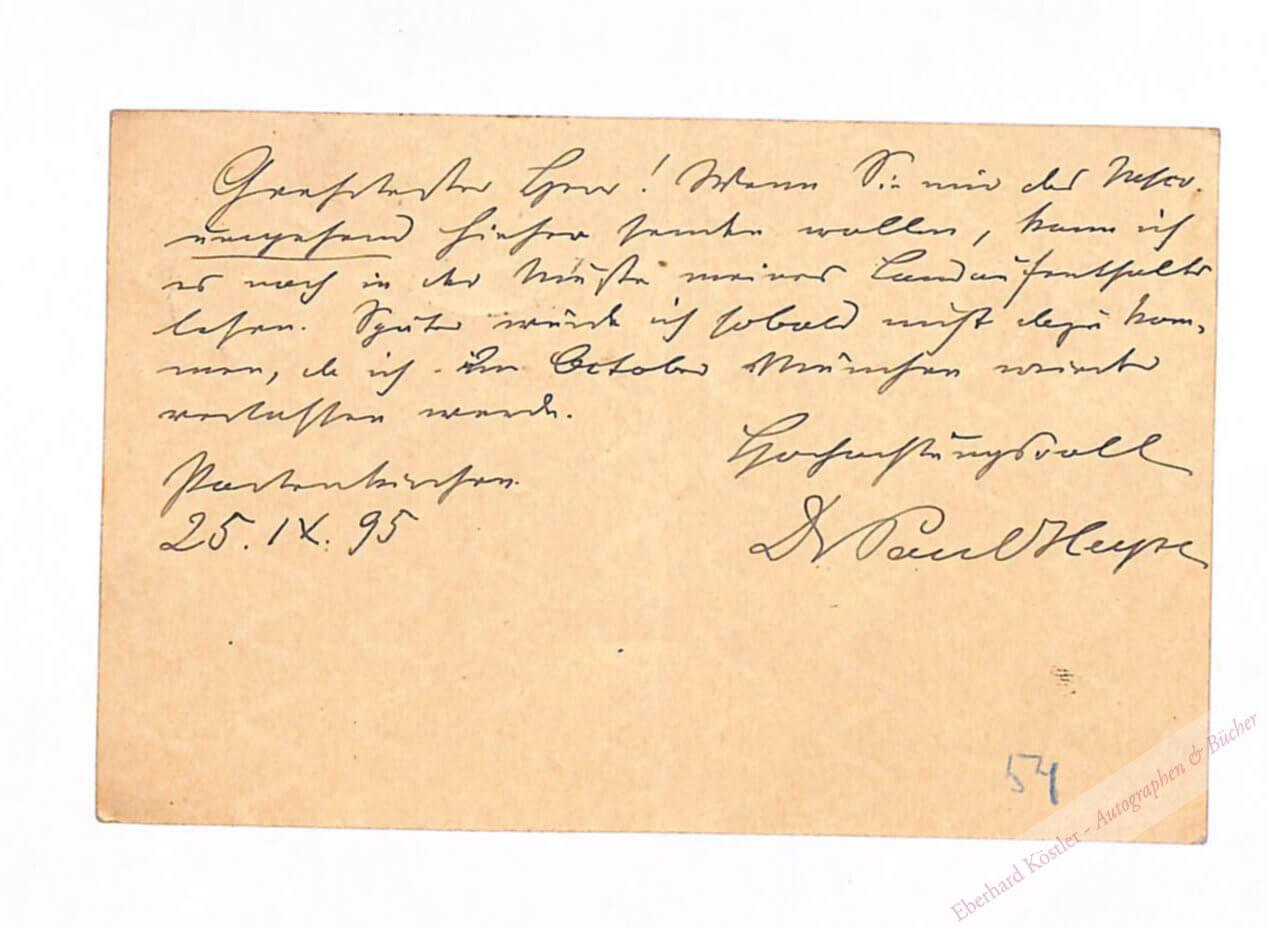 Geehrtester Herr! Wenn Sie mir das
umgehend hieher senden wollen, kann ich
es noch in der Muße meines Landaufenthalts
lesen. Später würde ich sobald nicht dazu kom-
men, da ich im October München wieder
verlassen werde.
Hochachtungsvoll
Partenkirchen.
25. IX. 95
Dr Paul Heyse
54
Eberhard Köstler - Autographen & Bücher